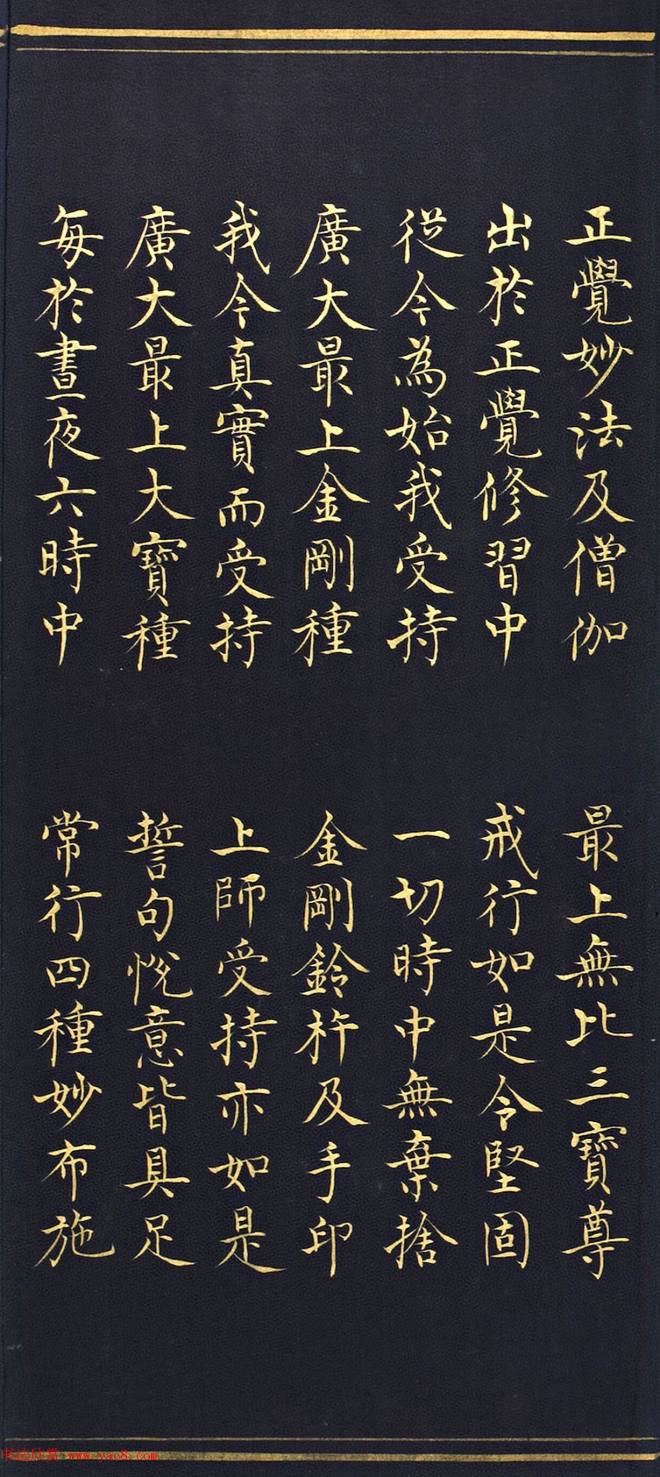 正覺妙法及僧伽　最上無比三寶尊
出於正覺修習中　戒行如是令堅固
從今為始我受持　一切時中無棄捨
廣大最上金剛種　金剛鈴杵及手印
我今真實而受持　上師受持亦如是
廣大最上大寶種　誓句悅意皆具足
每於晝夜六時中　常行四種妙布施
www.yac8.com